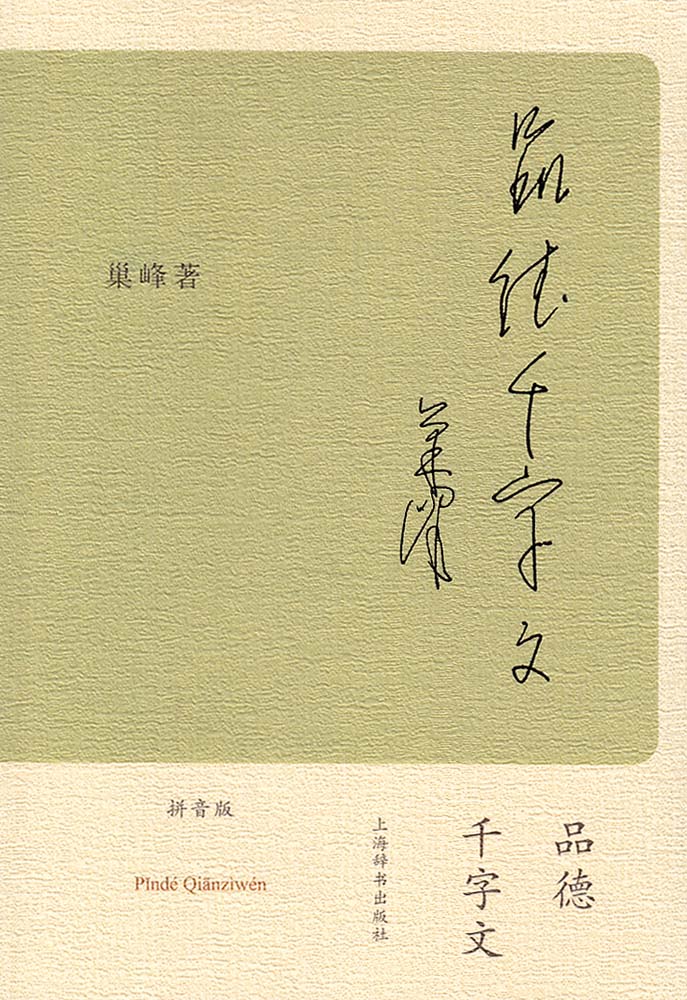 品德千字文
巢峰
巢峰著
拼音版
Pǐndé Qiānzìwén
品德
千字文
上海辞书出版社